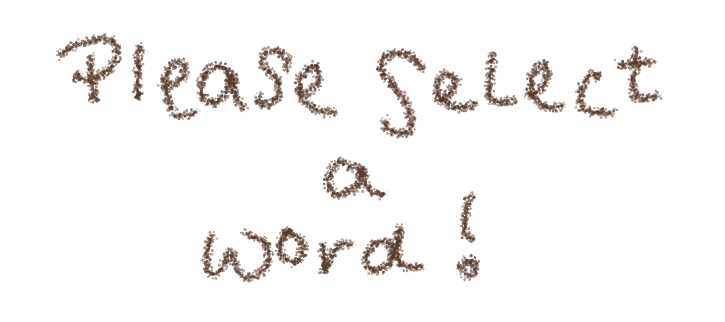 Please Select
a
word!